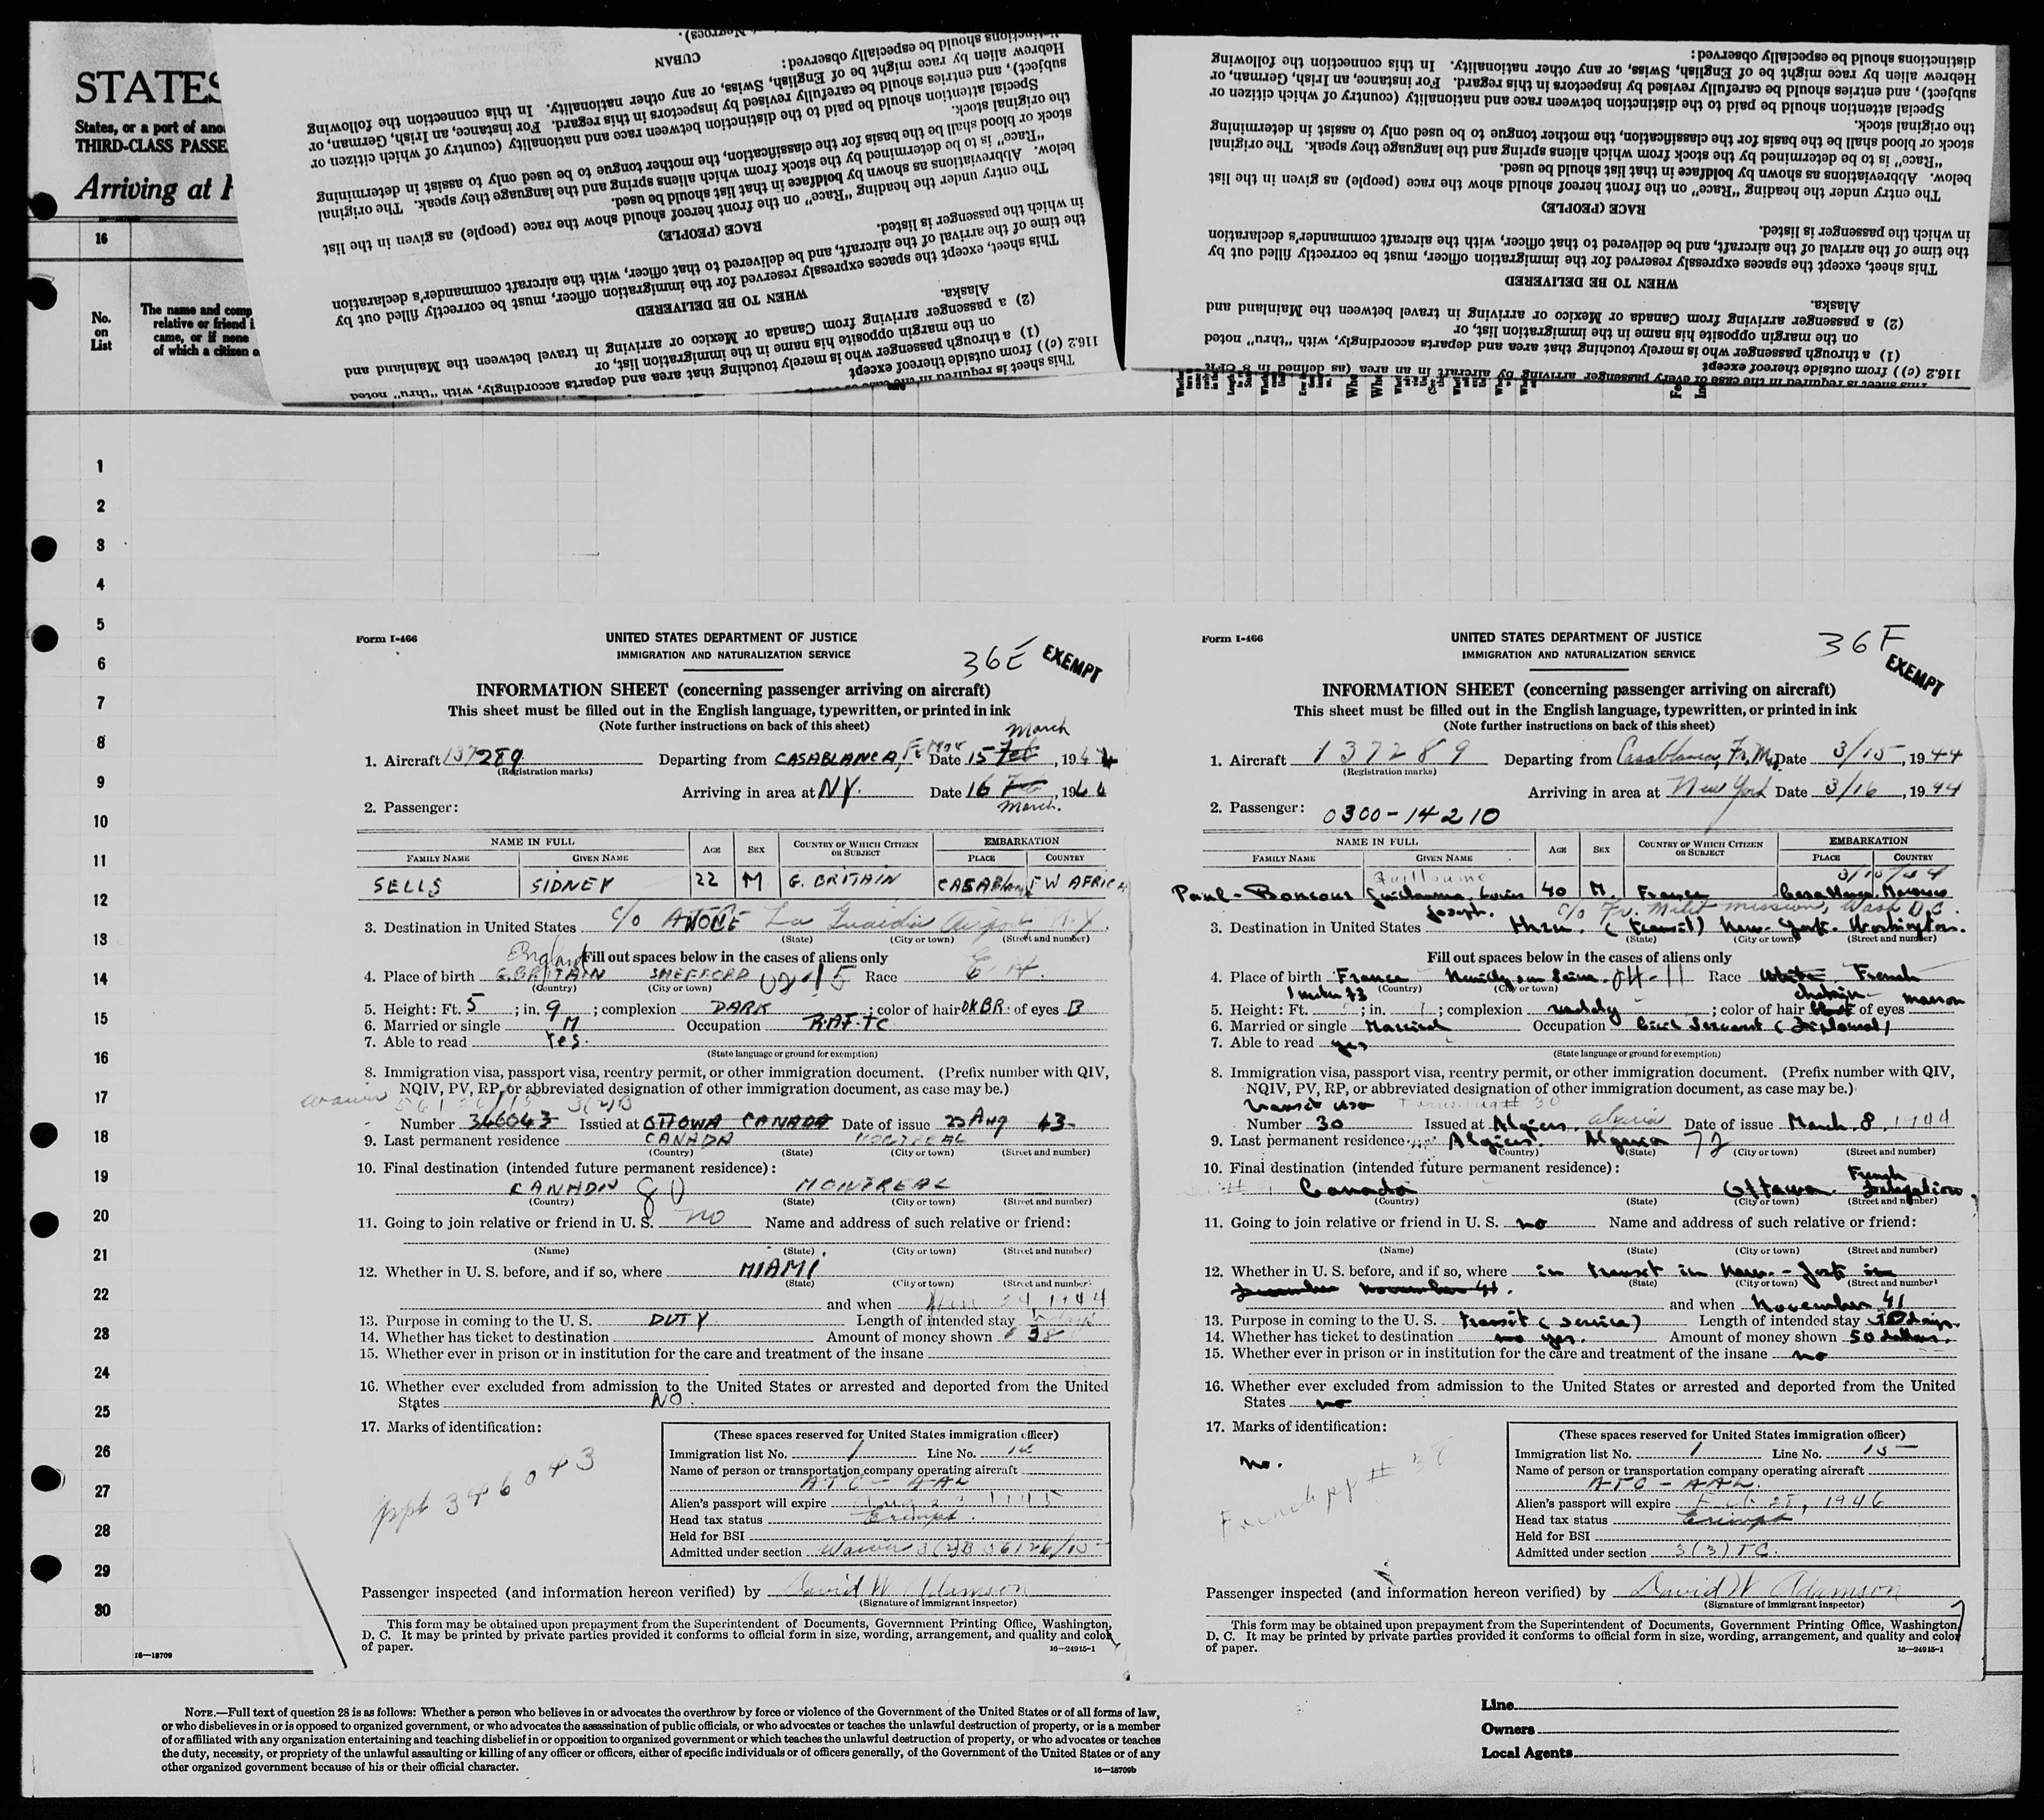 STATES
States, or a port of ano
THIRD-CLASS PASSE
Arriving at
16
No.
on
List
The name and comp
relative or friend i
came, or if none
of which a citizen o
1
2
3
4
5
6
7
8
9
10
11
12
13
14
15
16
17
18
19
20
21
22
28
24
25
26
27
28
29
30
16—18709
This sheet is required in the case of every passenger
116.2 (c)) from outside thereof except
(1) a through passenger who is merely touching that area and departs accordingly, with "thru" noted
on the margin opposite his name in the immigration list, or
(2) a passenger arriving from Canada or Mexico or arriving in travel between the Mainland and
Alaska.
WHEN TO BE DELIVERED
This sheet, except the spaces expressly reserved for the immigration officer, must be correctly filled out by
the time of the arrival of the aircraft, and be delivered to that officer, with the aircraft commander's declaration
in which the passenger is listed.
RACE (PEOPLE)
The entry under the heading "Race" on the front hereof should show the race (people) as given in the list
below. Abbreviations as shown by boldface in that list should be used.
"Race" is to be determined by the stock from which aliens spring and the language they speak. The original
stock or blood shall be the basis for the classification, the mother tongue to be used only to assist in determining
the original stock.
Special attention should be paid to the distinction between race and nationality (country of which citizen or
subject), and entries should be carefully revised by inspectors in this regard. For instance, an Irish, German, or
Hebrew alien by race might be of English, Swiss, or any other nationality. In this connection the following
distinctions should be especially observed:
CUBAN
Negroes).
This sheet is required in the case of every passenger arriving by aircraft in an area (as defined in 8 CFR
116.2 (c)) from outside thereof except
(1) a through passenger who is merely touching that area and departs accordingly, with "thru" noted
on the margin opposite his name in the immigration list, or
(2) a passenger arriving from Canada or Mexico or arriving in travel between the Mainland and
Alaska.
WHEN TO BE DELIVERED
This sheet, except the spaces expressly reserved for the immigration officer, must be correctly filled out by
the time of the arrival of the aircraft, and be delivered to that officer, with the aircraft commander's declaration
in which the passenger is listed.
RACE (PEOPLE)
The entry under the heading "Race" on the front hereof should show the race (people) as given in the list
below. Abbreviations as shown by boldface in that list should be used.
"Race" is to be determined by the stock from which aliens spring and the language they speak. The original
stock or blood shall be the basis for the classification, the mother tongue to be used only to assist in determining
the original stock.
Special attention should be paid to the distinction between race and nationality (country of which citizen or
subject), and entries should be carefully revised by inspectors in this regard. For instance, an Irish, German, or
Hebrew alien by race might be of English, Swiss, or any other nationality. In this connection the following
distinctions should be especially observed:
Form I-466
UNITED STATES DEPARTMENT OF JUSTICE
IMMIGRATION AND NATURALIZATION SERVICE
36E EXEMPT
INFORMATION SHEET (concerning passenger arriving on aircraft)
This sheet must be filled out in the English language, typewritten, or printed in ink
(Note further instructions on back of this sheet)
March
1. Aircraft 137289 Departing from CASABLANCA, Fr Mor Date 15 Feb, 1944
(Registration marks)
Arriving in area at NY. Date 16 Feb, 1944
March.
2. Passenger:
NAME IN FULL AGE SEX COUNTRY OF WHICH CITIZEN OR SUBJECT EMBARKATION
FAMILY NAME GIVEN NAME PLACE COUNTRY
SELLS SIDNEY 22 M G. BRITAIN CASABlanca F W AFRICA
3. Destination in United States c/o La Guardia Airport, N.Y.
(State) (City or town) (Street and number)
England Fill out spaces below in the cases of aliens only
4. Place of birth G.BRITAIN SHEFFORD 02-15 Race
(Country) (City or town)
5. Height: Ft. 5 ; in. 9 ; complexion DARK ; color of hair DK BR. of eyes B
6. Married or single M Occupation R.A.F.T.C
7. Able to read Yes.
(State language or ground for exemption)
8. Immigration visa, passport visa, reentry permit, or other immigration document. (Prefix number with QIV,
NQIV, PV, RP, or abbreviated designation of other immigration document, as case may be.)
waiver 56126/15 3(2)B
Number 346043 Issued at OTTOWA CANADA Date of issue 23 Aug 43
9. Last permanent residence CANADA MONTREAL
(Country) (State) (City or town) (Street and number)
10. Final destination (intended future permanent residence):
CANADA 80 MONTREAL
(Country) (State) (City or town) (Street and number)
11. Going to join relative or friend in U. S. no Name and address of such relative or friend:
(Name) (State) (City or town) (Street and number)
12. Whether in U. S. before, and if so, where MIAMI
(State) (City or town) (Street and number)
and when 24 1944
13. Purpose in coming to the U. S. DUTY Length of intended stay
14. Whether has ticket to destination Amount of money shown $ 38
15. Whether ever in prison or in institution for the care and treatment of the insane
16. Whether ever excluded from admission to the United States or arrested and deported from the United
States NO.
17. Marks of identification:
ppt 346043
(These spaces reserved for United States immigration officer)
Immigration list No. 1 Line No. 14
Name of person or transportation company operating aircraft
ATC - AAL
Alien's passport will expire Aug 23 1945
Head tax status Exempt.
Held for BSI
Admitted under section Waiver 3(2)B 56126/15
Passenger inspected (and information hereon verified) by David W Adamson
(Signature of Immigrant Inspector)
This form may be obtained upon prepayment from the Superintendent of Documents, Government Printing Office, Washington,
D. C. It may be printed by private parties provided it conforms to official form in size, wording, arrangement, and quality and color
of paper.
16—24915-1
Form I-466
UNITED STATES DEPARTMENT OF JUSTICE
IMMIGRATION AND NATURALIZATION SERVICE
36F EXEMPT
INFORMATION SHEET (concerning passenger arriving on aircraft)
This sheet must be filled out in the English language, typewritten, or printed in ink
(Note further instructions on back of this sheet)
1. Aircraft 137289 Departing from Casablanca, Fr. M. Date 3/15, 1944
(Registration marks)
Arriving in area at New York Date 3/16, 1944
2. Passenger: 0300-14210
NAME IN FULL AGE SEX COUNTRY OF WHICH CITIZEN OR SUBJECT EMBARKATION
FAMILY NAME GIVEN NAME PLACE COUNTRY
Guillaume 3/15/44
Paul-Boncour Guillaume, Louis 40 M. France Casablanca Morocco
Joseph. c/o Fr. Milit mission, Wash D.C.
3. Destination in United States thru. (transit) New-York. Washington.
(State) (City or town) (Street and number)
Fill out spaces below in the cases of aliens only
4. Place of birth France Neuilly sur Seine 04-11 Race White French
(Country) (City or town)
1 meter 73 chatain marron
5. Height: Ft. ; in. ; complexion ruddy ; color of hair of eyes
6. Married or single Married Occupation Civil Servant (Diplomat)
7. Able to read yes
(State language or ground for exemption)
8. Immigration visa, passport visa, reentry permit, or other immigration document. (Prefix number with QIV,
NQIV, PV, RP, or abbreviated designation of other immigration document, as case may be.)
transit visa
Number 30 Issued at Algiers. Algeria Date of issue March. 8. 1944
9. Last permanent residence Algiers. Algeria 72
(Country) (State) (City or town) (Street and number)
10. Final destination (intended future permanent residence):
Canada Ottawa. French Delegation.
(Country) (State) (City or town) (Street and number)
11. Going to join relative or friend in U. S. no Name and address of such relative or friend:
(Name) (State) (City or town) (Street and number)
12. Whether in U. S. before, and if so, where in transit in New-York in
(State) (City or town) (Street and number)
December November 41.
and when November 41
13. Purpose in coming to the U. S. transit (service) Length of intended stay 10 days.
14. Whether has ticket to destination no yes. Amount of money shown 50 dollars.
15. Whether ever in prison or in institution for the care and treatment of the insane no
16. Whether ever excluded from admission to the United States or arrested and deported from the United
States no
17. Marks of identification:
no.
French pp #
(These spaces reserved for United States immigration officer)
Immigration list No. 1 Line No. 15
Name of person or transportation company operating aircraft
ATC - AAL.
Alien's passport will expire Feb. 28, 1946
Head tax status Exempt
Held for BSI
Admitted under section 3(3) TC.
Passenger inspected (and information hereon verified) by David W Adamson
(Signature of Immigrant Inspector)
This form may be obtained upon prepayment from the Superintendent of Documents, Government Printing Office, Washington,
D. C. It may be printed by private parties provided it conforms to official form in size, wording, arrangement, and quality and color
of paper.
16—24915-1
NOTE.—Full text of question 28 is as follows: Whether a person who believes in or advocates the overthrow by force or violence of the Government of the United States or of all forms of law,
or who disbelieves in or is opposed to organized government, or who advocates the assassination of public officials, or who advocates or teaches the unlawful destruction of property, or is a member
of or affiliated with any organization entertaining and teaching disbelief in or opposition to organized government or which teaches the unlawful destruction of property, or who advocates or teaches
the duty, necessity, or propriety of the unlawful assaulting or killing of any officer or officers, either of specific individuals or of officers generally, of the Government of the United States or of any
other organized government because of his or their official character.
16—18709b
Line
Owners
Local Agents